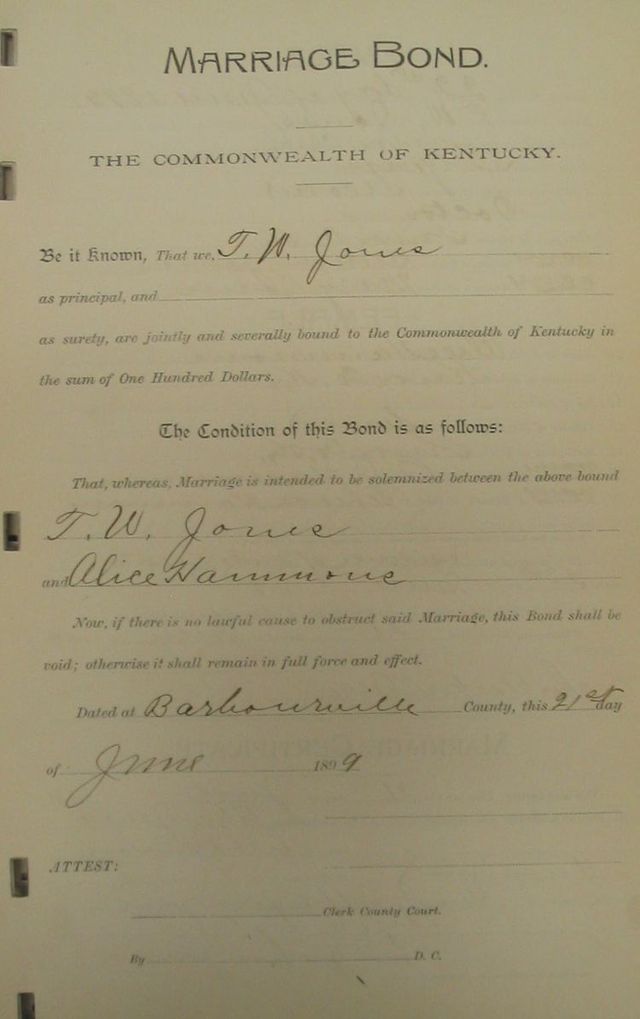 MARRIAGE BOND.
THE COMMONWEALTH OF KENTUCKY.
Be it Known, That we, T. W. Jones
as principal, and
as surety, are jointly and severally bound to the Commonwealth of Kentucky in
the sum of One Hundred Dollars.
The Condition of this Bond is as follows:
That, whereas, Marriage is intended to be solemnized between the above bound
T. W. Jones
and Alice Hammons
Now, if there is no lawful cause to obstruct said Marriage, this Bond shall be
void; otherwise it shall remain in full force and effect.
Dated at Barbourville County, this 21st day
of June 1899
ATTEST:
Clerk County Court.
By D. C.